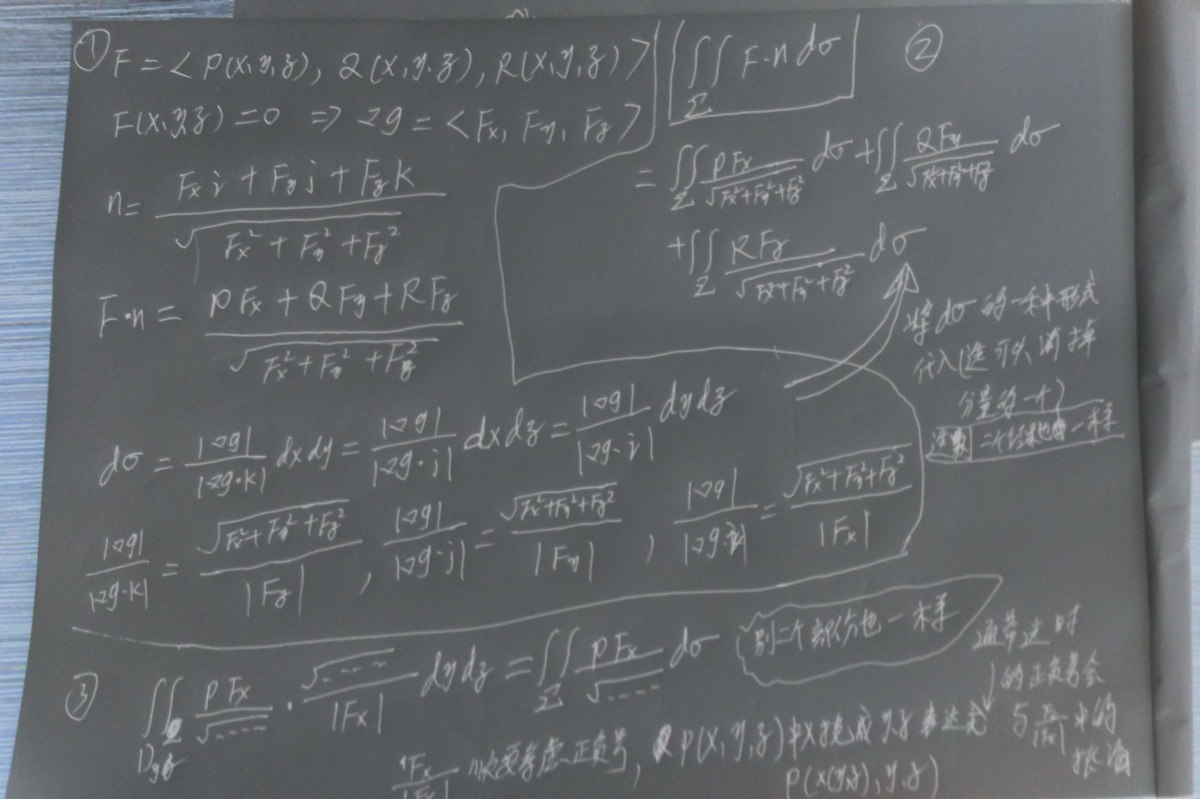 ① F = < P(x,y,z), Q(x,y,z), R(x,y,z) >
F(x,y,z) = 0 ⇒ ∇g = < Fx, Fy, Fz >
n = (Fx i + Fy j + Fz k) / √(Fx² + Fy² + Fz²)
F·n = (PFx + QFy + RFz) / √(Fx² + Fy² + Fz²)
② ∬_Σ F·n dσ
= ∬_Σ PFx / √(Fx²+Fy²+Fz²) dσ + ∬_Σ QFy / √(Fx²+Fy²+Fz²) dσ
+ ∬_Σ RFz / √(Fx²+Fy²+Fz²) dσ
将dσ的一种形式
代入(这可以消掉
分量的一个)
二个结果也一样
dσ = |∇g| / |∇g·k| dxdy = |∇g| / |∇g·j| dxdz = |∇g| / |∇g·i| dydz
|∇g| / |∇g·k| = √(Fx²+Fy²+Fz²) / |Fz| , |∇g| / |∇g·j| = √(Fx²+Fy²+Fz²) / |Fy| , |∇g| / |∇g·i| = √(Fx²+Fy²+Fz²) / |Fx|
③ ∬_Dyz PFx / √---- · √---- / |Fx| dydz = ∬_Σ PFx / √---- dσ
别二个部份也一样
通常这时
的正负号会
与 Fx / |Fx| 中的
抵消
Fx / |Fx| 要考虑正负号, P(x,y,z)中x换成y,z表达式
P(x(y,z), y, z)